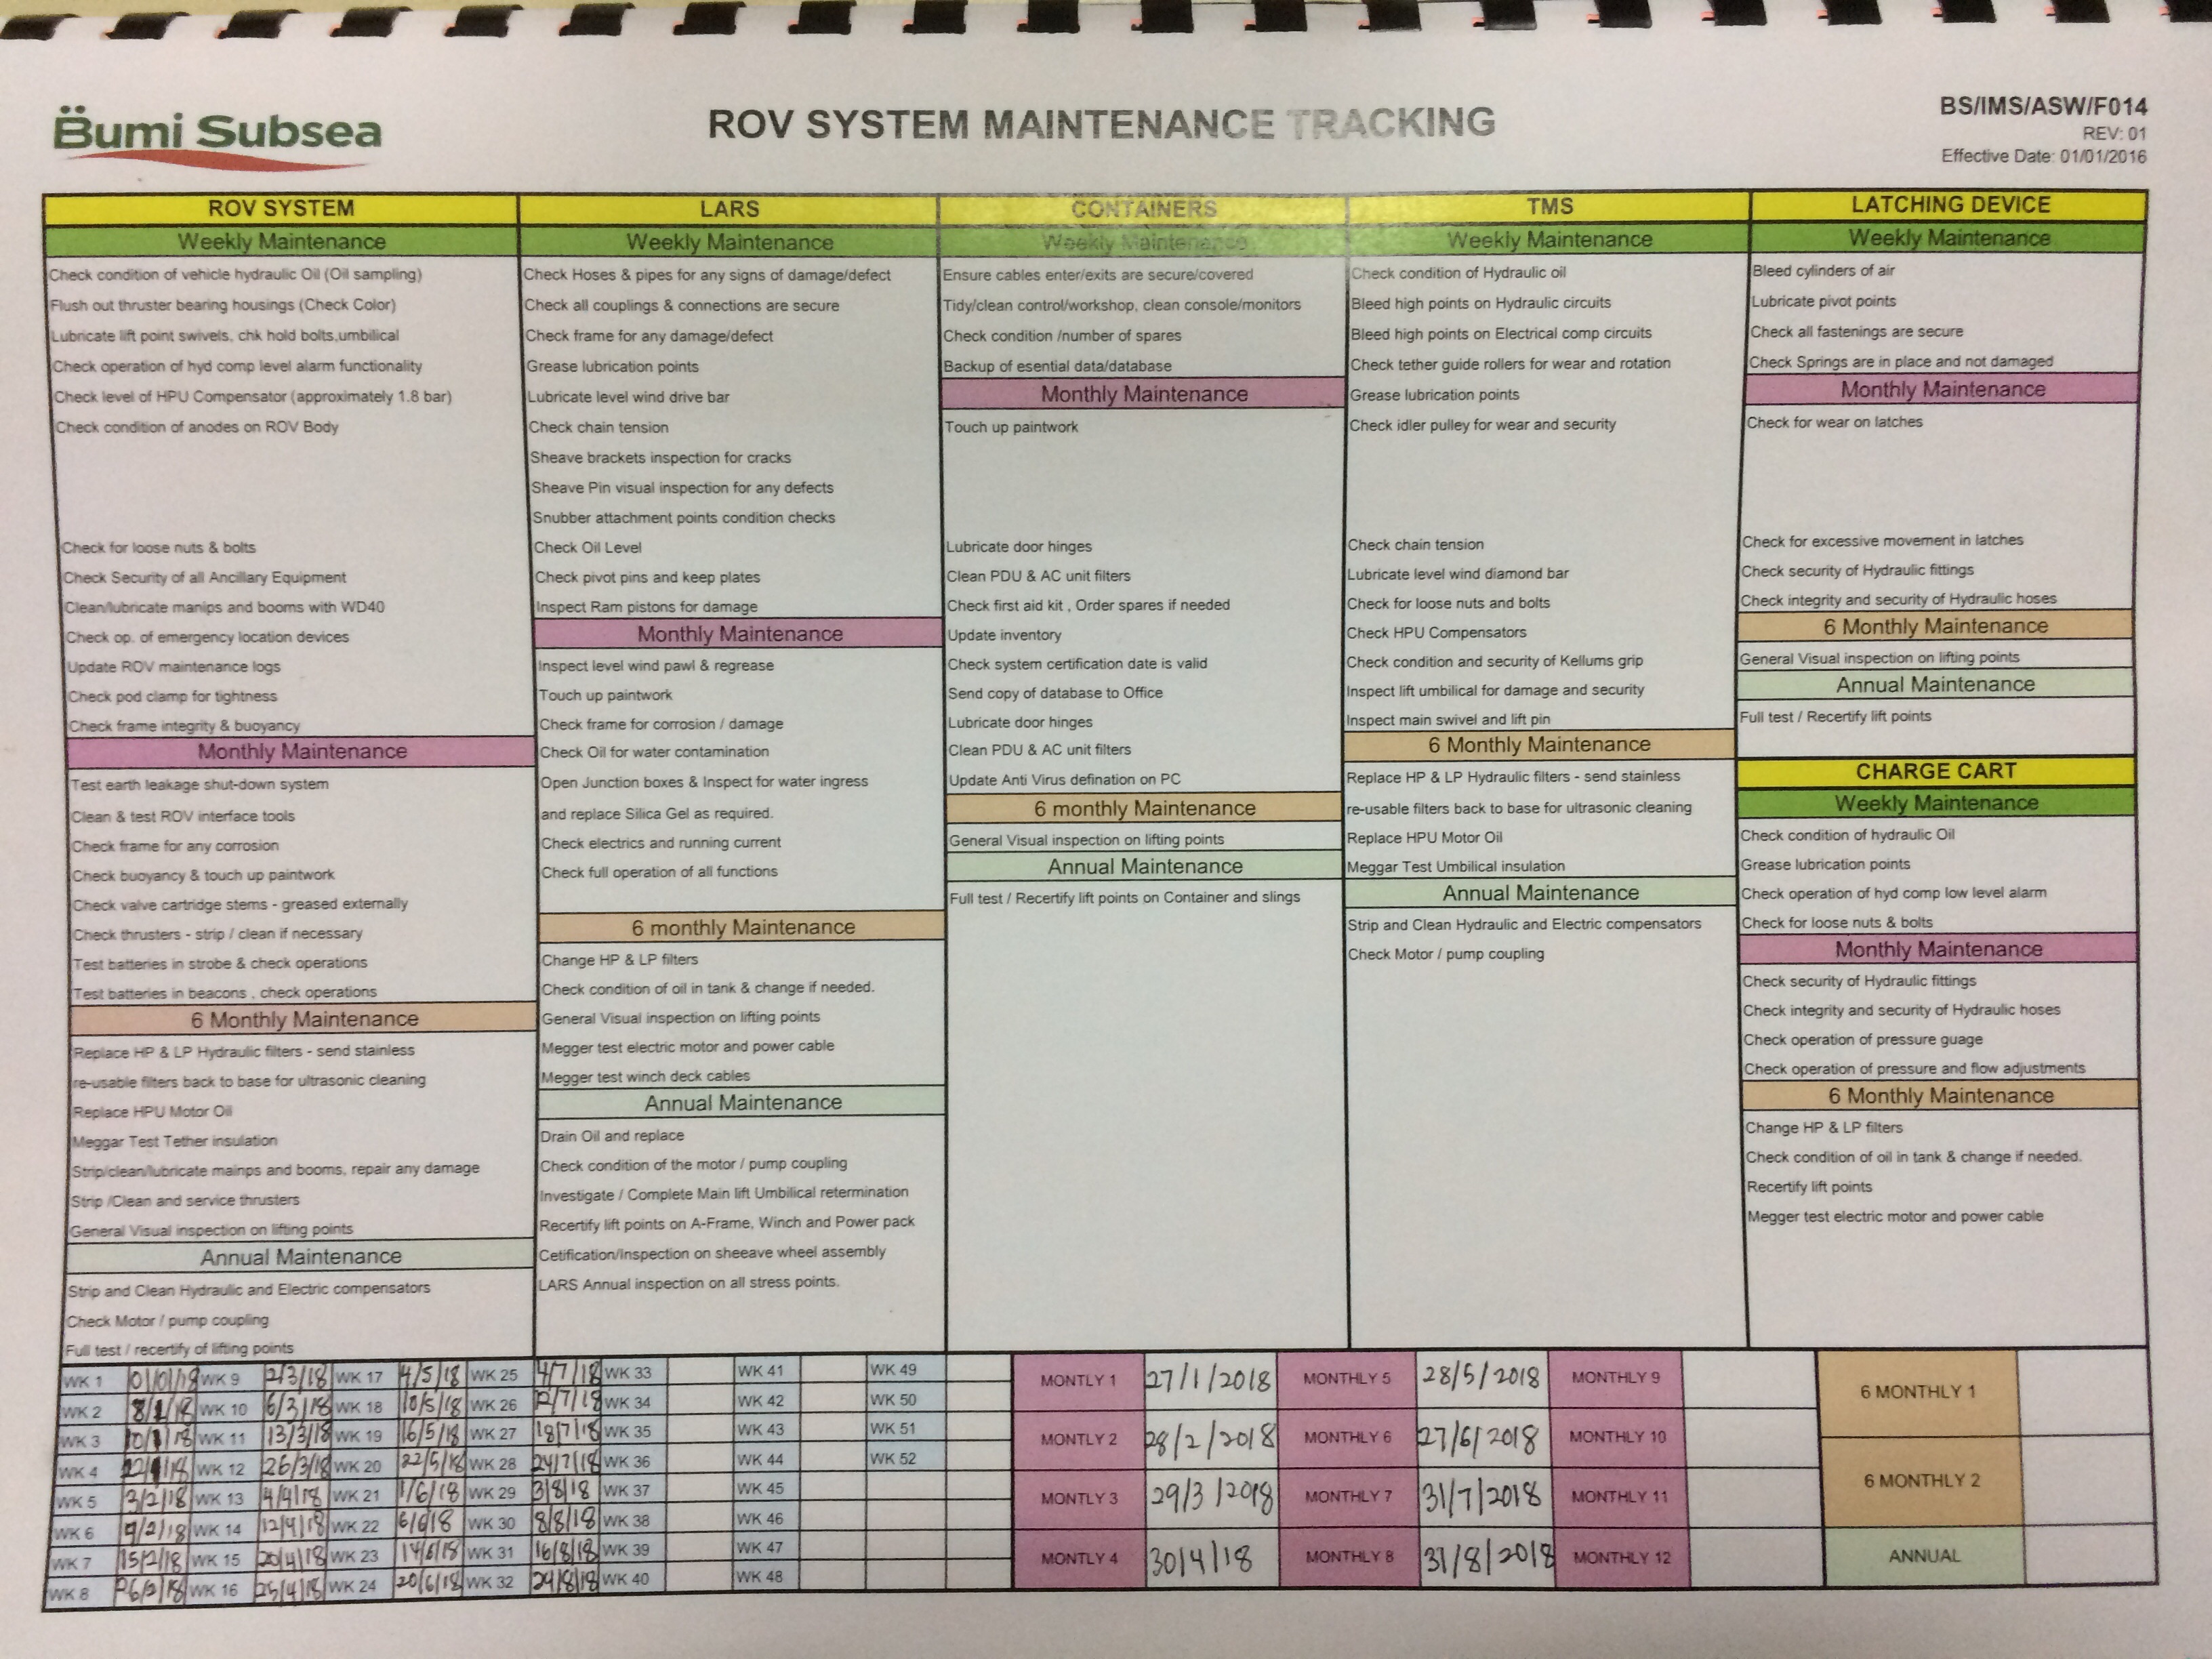 Bumi Subsea
ROV SYSTEM MAINTENANCE TRACKING
BS/IMS/ASW/F014
REV: 01
Effective Date: 01/01/2016
ROV SYSTEM
Weekly Maintenance
Check condition of vehicle hydraulic Oil (Oil sampling)
Flush out thruster bearing housings (Check Color)
Lubricate lift point swivels, chk hold bolts,umbilical
Check operation of hyd comp level alarm functionality
Check level of HPU Compensator (approximately 1.8 bar)
Check condition of anodes on ROV Body
Check for loose nuts & bolts
Check Security of all Ancillary Equipment
Clean/lubricate manips and booms with WD40
Check op. of emergency location devices
Update ROV maintenance logs
Check pod clamp for tightness
Check frame integrity & buoyancy
Monthly Maintenance
Test earth leakage shut-down system
Clean & test ROV interface tools
Check frame for any corrosion
Check buoyancy & touch up paintwork
Check valve cartridge stems - greased externally
Check thrusters - strip / clean if necessary
Test batteries in strobe & check operations
Test batteries in beacons , check operations
6 Monthly Maintenance
Replace HP & LP Hydraulic filters - send stainless
re-usable filters back to base for ultrasonic cleaning
Replace HPU Motor Oil
Meggar Test Tether insulation
Strip/clean/lubricate mainps and booms, repair any damage
Strip /Clean and service thrusters
General Visual inspection on lifting points
Annual Maintenance
Strip and Clean Hydraulic and Electric compensators
Check Motor / pump coupling
Full test / recertify of lifting points
LARS
Weekly Maintenance
Check Hoses & pipes for any signs of damage/defect
Check all couplings & connections are secure
Check frame for any damage/defect
Grease lubrication points
Lubricate level wind drive bar
Check chain tension
Sheave brackets inspection for cracks
Sheave Pin visual inspection for any defects
Snubber attachment points condition checks
Check Oil Level
Check pivot pins and keep plates
Inspect Ram pistons for damage
Monthly Maintenance
Inspect level wind pawl & regrease
Touch up paintwork
Check frame for corrosion / damage
Check Oil for water contamination
Open Junction boxes & Inspect for water ingress
and replace Silica Gel as required.
Check electrics and running current
Check full operation of all functions
6 monthly Maintenance
Change HP & LP filters
Check condition of oil in tank & change if needed.
General Visual inspection on lifting points
Megger test electric motor and power cable
Megger test winch deck cables
Annual Maintenance
Drain Oil and replace
Check condition of the motor / pump coupling
Investigate / Complete Main lift Umbilical retermination
Recertify lift points on A-Frame, Winch and Power pack
Cetification/Inspection on sheeave wheel assembly
LARS Annual inspection on all stress points.
CONTAINERS
Weekly Maintenance
Ensure cables enter/exits are secure/covered
Tidy/clean control/workshop, clean console/monitors
Check condition /number of spares
Backup of esential data/database
Monthly Maintenance
Touch up paintwork
Lubricate door hinges
Clean PDU & AC unit filters
Check first aid kit , Order spares if needed
Update inventory
Check system certification date is valid
Send copy of database to Office
Lubricate door hinges
Clean PDU & AC unit filters
Update Anti Virus defination on PC
6 monthly Maintenance
General Visual inspection on lifting points
Annual Maintenance
Full test / Recertify lift points on Container and slings
TMS
Weekly Maintenance
Check condition of Hydraulic oil
Bleed high points on Hydraulic circuits
Bleed high points on Electrical comp circuits
Check tether guide rollers for wear and rotation
Grease lubrication points
Check idler pulley for wear and security
Check chain tension
Lubricate level wind diamond bar
Check for loose nuts and bolts
Check HPU Compensators
Check condition and security of Kellums grip
Inspect lift umbilical for damage and security
Inspect main swivel and lift pin
6 Monthly Maintenance
Replace HP & LP Hydraulic filters - send stainless
re-usable filters back to base for ultrasonic cleaning
Replace HPU Motor Oil
Meggar Test Umbilical insulation
Annual Maintenance
Strip and Clean Hydraulic and Electric compensators
Check Motor / pump coupling
LATCHING DEVICE
Weekly Maintenance
Bleed cylinders of air
Lubricate pivot points
Check all fastenings are secure
Check Springs are in place and not damaged
Monthly Maintenance
Check for wear on latches
Check for excessive movement in latches
Check security of Hydraulic fittings
Check integrity and security of Hydraulic hoses
6 Monthly Maintenance
General Visual inspection on lifting points
Annual Maintenance
Full test / Recertify lift points
CHARGE CART
Weekly Maintenance
Check condition of hydraulic Oil
Grease lubrication points
Check operation of hyd comp low level alarm
Check for loose nuts & bolts
Monthly Maintenance
Check security of Hydraulic fittings
Check integrity and security of Hydraulic hoses
Check operation of pressure guage
Check operation of pressure and flow adjustments
6 Monthly Maintenance
Change HP & LP filters
Check condition of oil in tank & change if needed.
Recertify lift points
Megger test electric motor and power cable
WK 1 WK 9 2/3/18 WK 17 4/5/18 WK 25 4/7/18 WK 33 WK 41 WK 49
WK 2 WK 10 6/3/18 WK 18 10/5/18 WK 26 12/7/18 WK 34 WK 42 WK 50
WK 3 WK 11 13/3/18 WK 19 16/5/18 WK 27 18/7/18 WK 35 WK 43 WK 51
WK 4 WK 12 26/3/18 WK 20 22/5/18 WK 28 24/7/18 WK 36 WK 44 WK 52
WK 5 2/2/18 WK 13 4/4/18 WK 21 1/6/18 WK 29 3/8/18 WK 37 WK 45
WK 6 9/2/18 WK 14 12/4/18 WK 22 6/6/18 WK 30 8/8/18 WK 38 WK 46
WK 7 15/2/18 WK 15 20/4/18 WK 23 14/6/18 WK 31 16/8/18 WK 39 WK 47
WK 8 WK 16 25/4/18 WK 24 20/6/18 WK 32 24/8/18 WK 40 WK 48
MONTLY 1 27/1/2018 MONTHLY 5 28/5/2018 MONTHLY 9
MONTLY 2 28/2/2018 MONTHLY 6 27/6/2018 MONTHLY 10
MONTLY 3 29/3/2018 MONTHLY 7 31/7/2018 MONTHLY 11
MONTLY 4 30/4/18 MONTHLY 8 31/8/2018 MONTHLY 12
6 MONTHLY 1
6 MONTHLY 2
ANNUAL